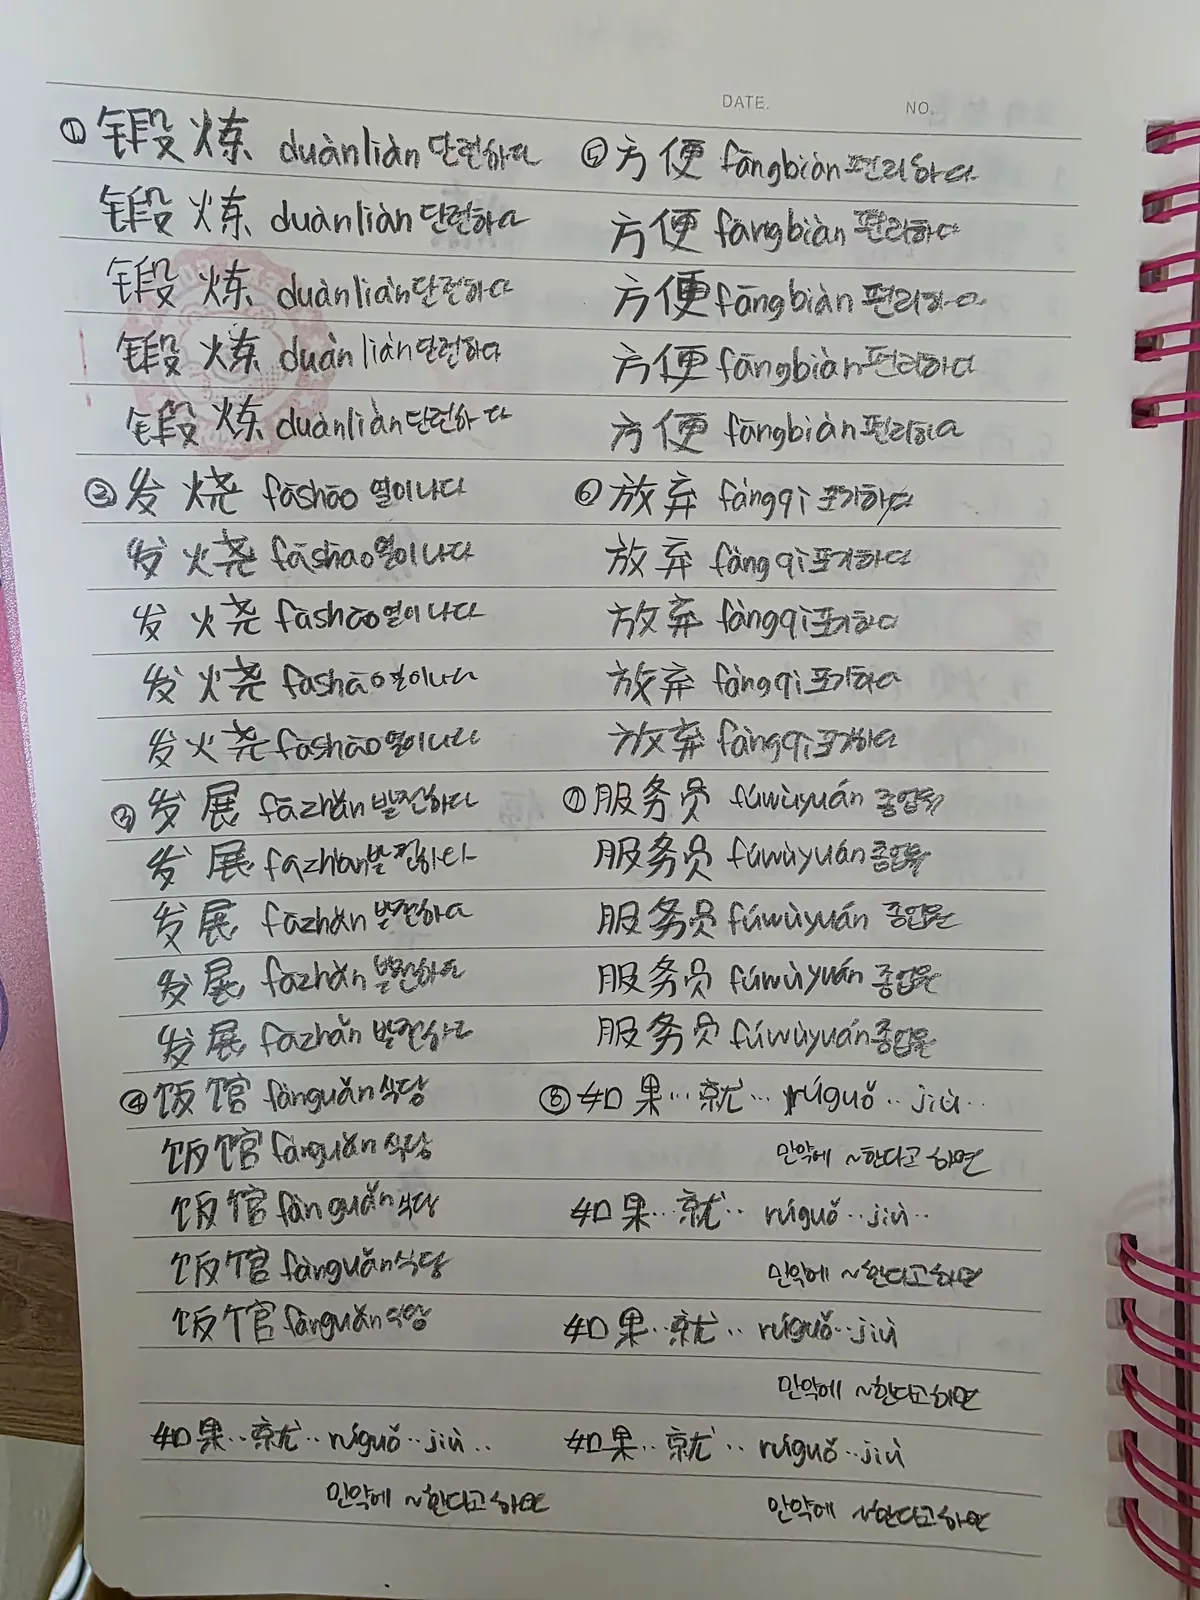 DATE.
NO.
① 锻炼 duànliàn 단련하다
锻炼 duànliàn 단련하다
锻炼 duànliàn 단련하다
锻炼 duànliàn 단련하다
锻炼 duànliàn 단련하다
② 发烧 fāshāo 열이나다
发烧 fāshāo 열이나다
发烧 fāshāo 열이나다
发烧 fāshāo 열이나다
发烧 fāshāo 열이나다
③ 发展 fāzhǎn 발전하다
发展 fāzhǎn 발전하다
发展 fāzhǎn 발전하다
发展 fāzhǎn 발전하다
发展 fāzhǎn 발전하다
④ 饭馆 fànguǎn 식당
饭馆 fànguǎn 식당
饭馆 fànguǎn 식당
饭馆 fànguǎn 식당
饭馆 fànguǎn 식당
如果‥就‥ rúguǒ‥jiù‥
만약에 ~한다고 하면
⑤ 方便 fāngbiàn 편리하다
方便 fāngbiàn 편리하다
方便 fāngbiàn 편리하다
方便 fāngbiàn 편리하다
方便 fāngbiàn 편리하다
⑥ 放弃 fàngqì 포기하다
放弃 fàngqì 포기하다
放弃 fàngqì 포기하다
放弃 fàngqì 포기하다
放弃 fàngqì 포기하다
⑦ 服务员 fúwùyuán 종업원
服务员 fúwùyuán 종업원
服务员 fúwùyuán 종업원
服务员 fúwùyuán 종업원
服务员 fúwùyuán 종업원
⑧ 如果…就… rúguǒ‥jiù‥
만약에 ~한다고 하면
如果…就‥ rúguǒ‥jiù‥
만약에 ~한다고하면
如果‥就‥ rúguǒ‥jiù
만약에 ~한다고하면
如果‥就‥ rúguǒ‥jiù
만약에 ~한다고하면